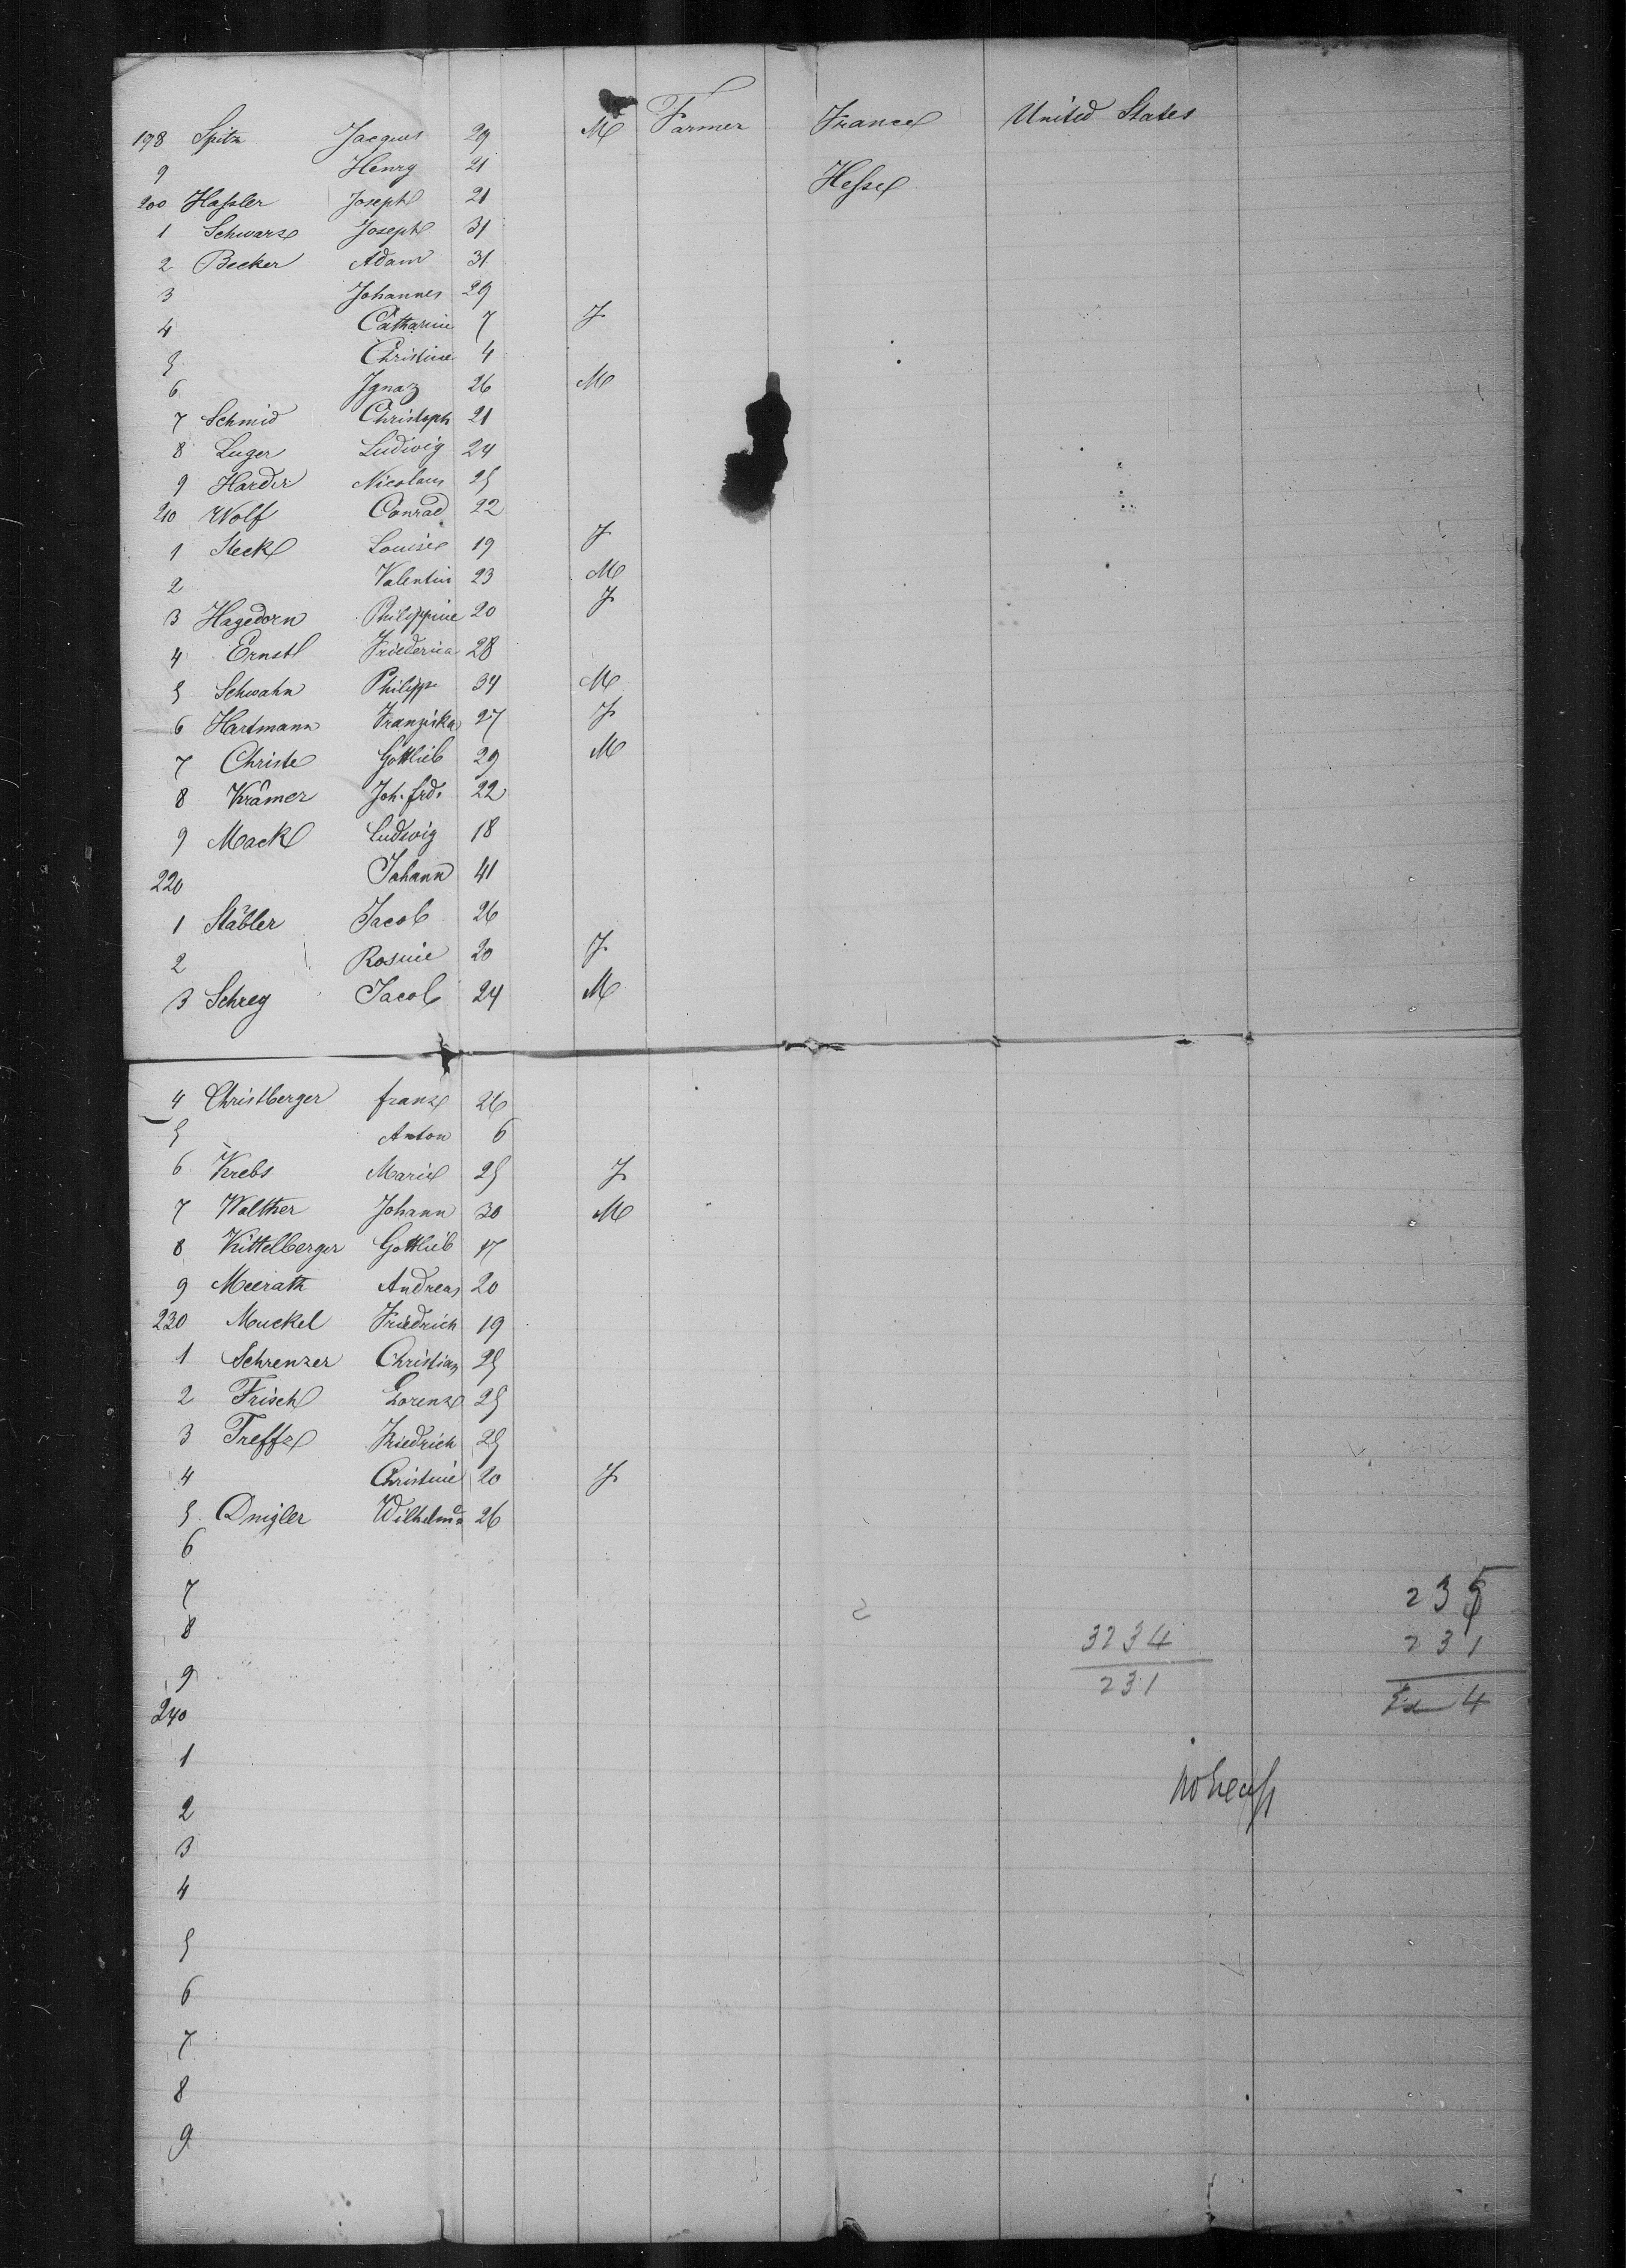 198 Spitz Jacques 29 M Farmer France United States
9 Henry 21
200 Hassler Joseph 21 Hesse
1 Schwarz Joseph 31
2 Becker Adam 31
3 Johannes 29
4 Catharine 7 F
5 Christine 4
6 Ignaz 26 M
7 Schmid Christoph 21
8 Luger Ludwig 24
9 Harder Nicolaus 25
210 Wolf Conrad 22
1 Steck Louise 19 F
2 Valentin 23 M
3 Hagedorn Philippine 20 F
4 Ernst Friederica 28
5 Schwahn Philipp 34 M
6 Hartmann Franziska 27 F
7 Christe Gottlieb 29 M
8 Krämer Joh. frd. 22
9 Mack Ludwig 18
220 Johann 41
1 Stäbler Jacob 26
2 Rosine 20 F
3 Schrey Jacob 24 M
4 Christberger franz 26
5 Anton 6
6 Krebs Marie 25 F
7 Walther Johann 30 M
8 Kittelberger Gottlieb 17
9 Meerath Andreas 20
230 Muckel Friedrich 19
1 Schrenzer Christian 25
2 Frisch Lorenz 25
3 Treffz Friedrich 25
4 Christine 20 F
5 Wilhelma 26
6
7
8
9
240
1
2
3
4
5
6
7
8
9
235
3234 231
231 4